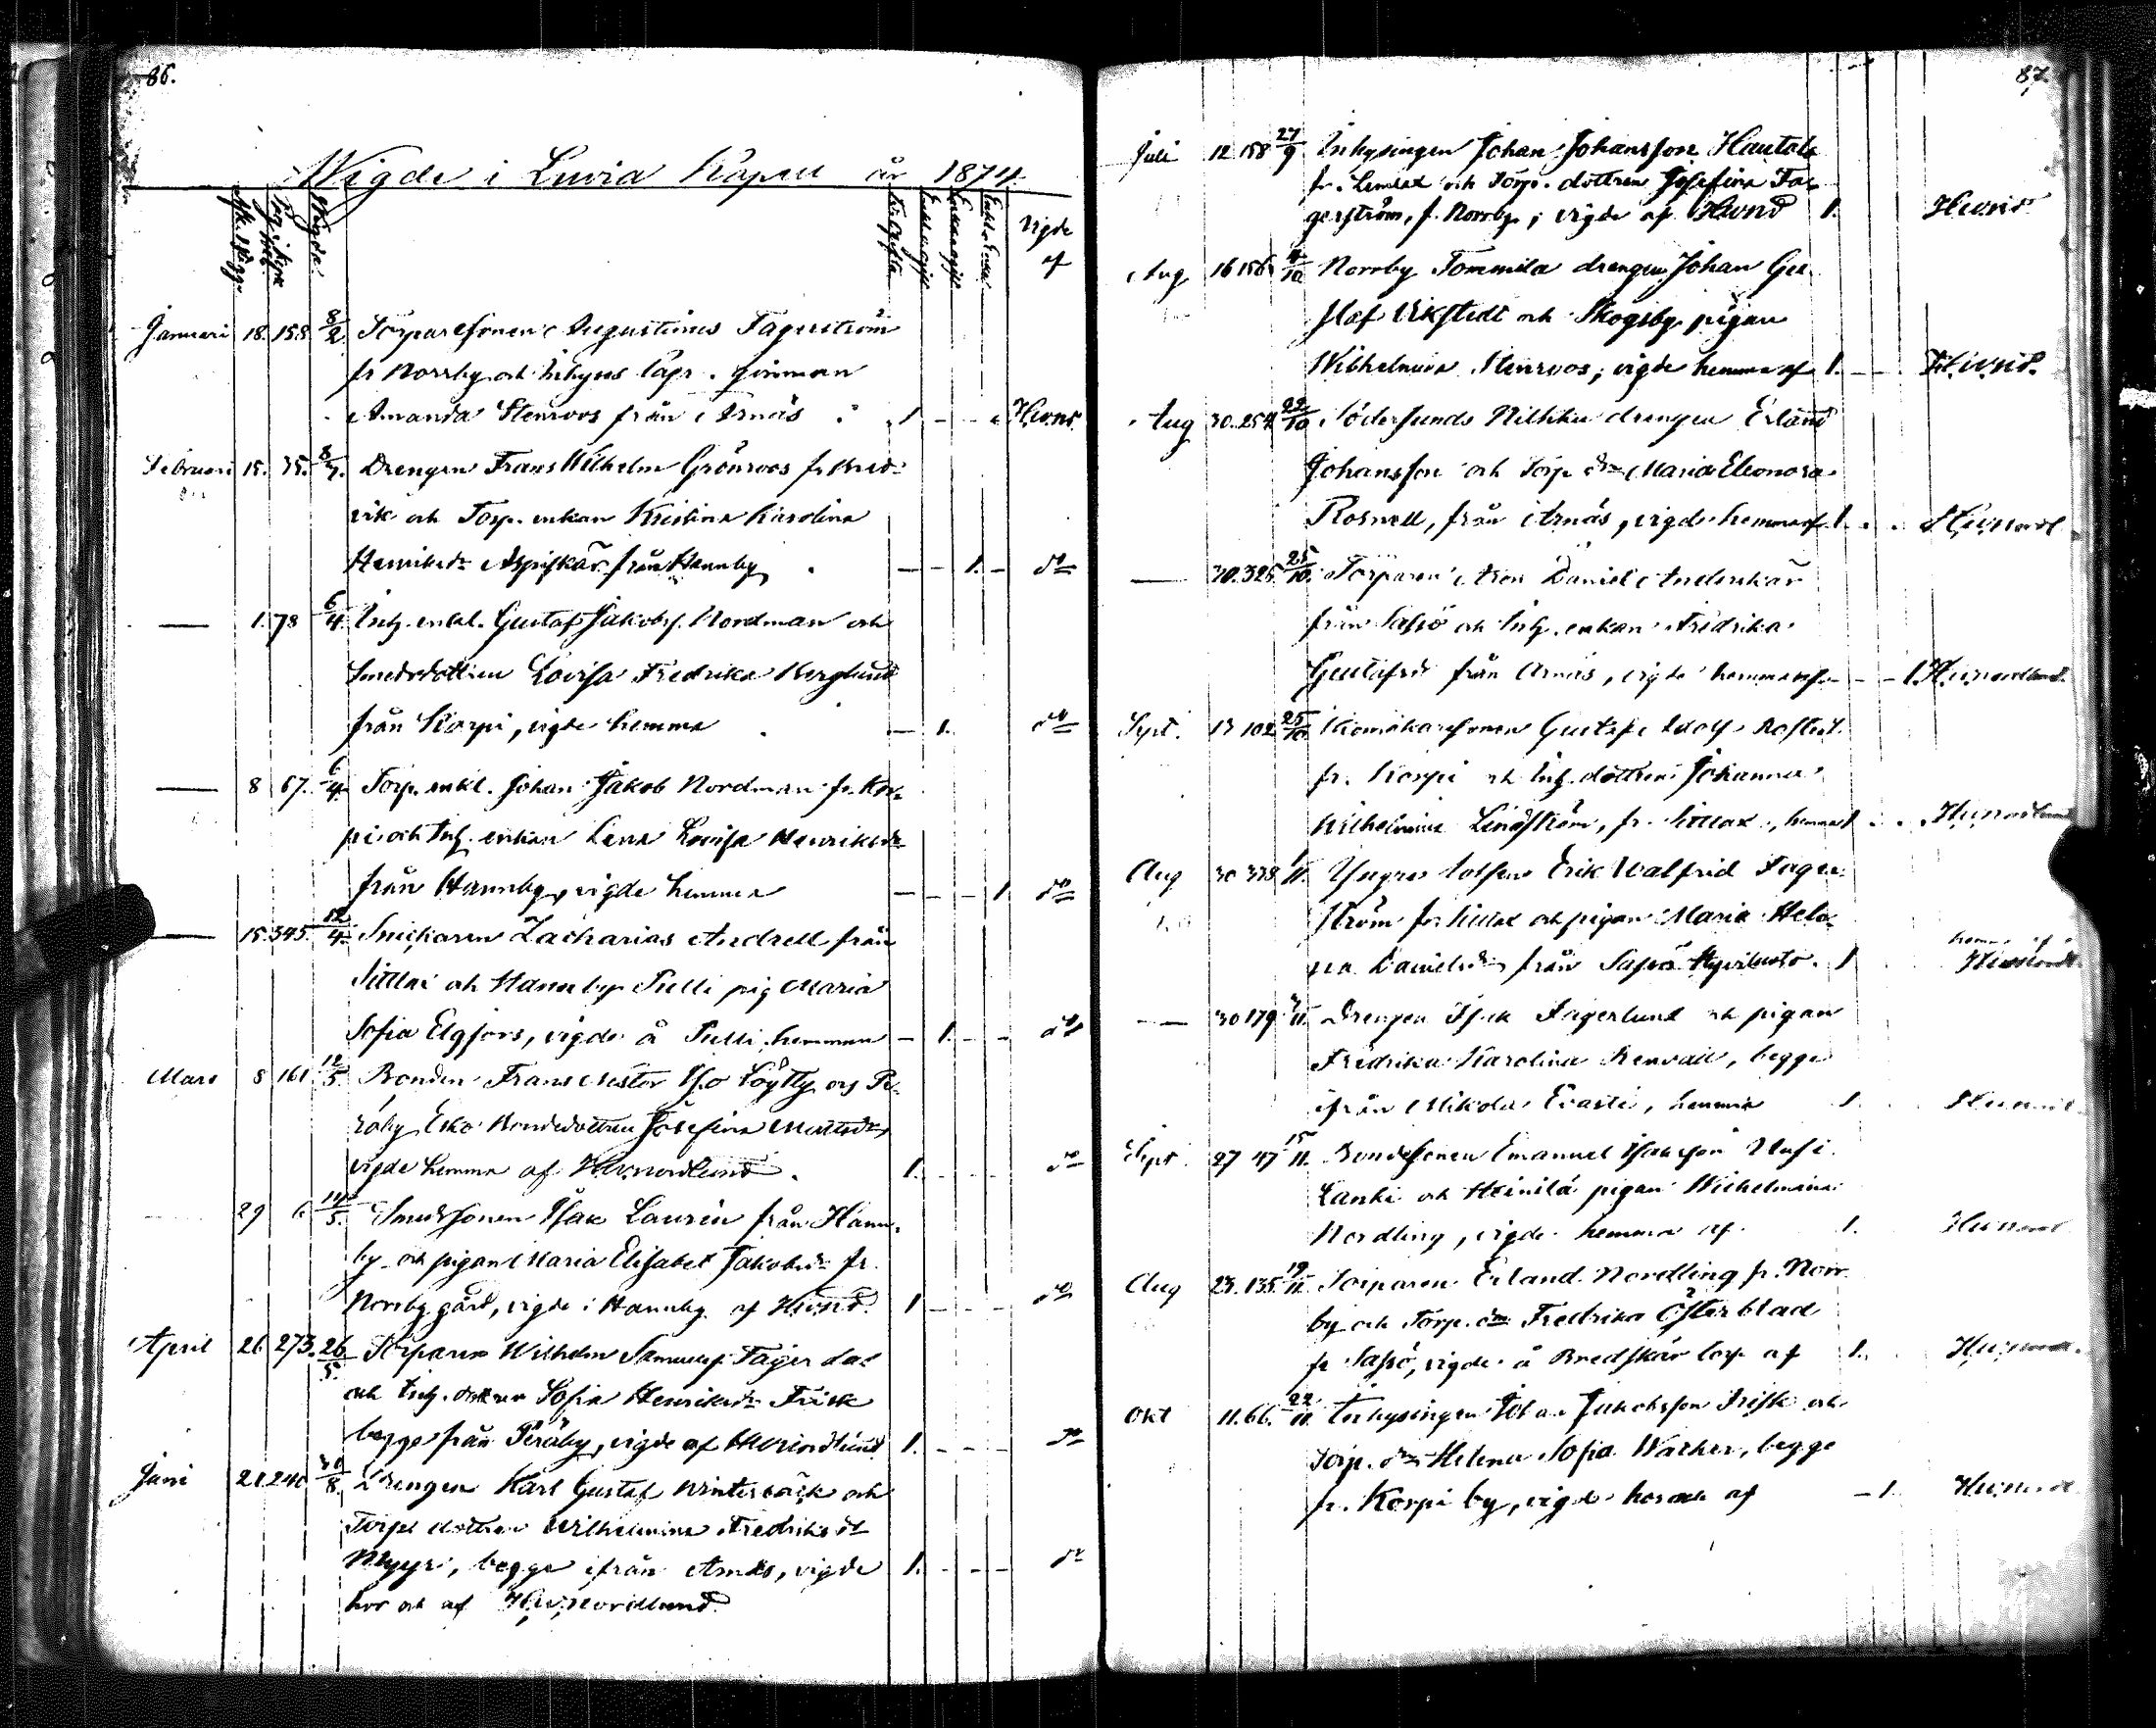 86.
Wigde i Luvia Kapell år 1874.
Wigde af
Januari 18. 158. 8/2. Torparesonen Augustinus Fagerström
fr Norrby och Inhyses
Amanda Stenroos från Arnäs 1. - - - HWNd.
Februari 15. 35. 8/3. Drengen Frans Wilhelm Grönroos fr Bred-
vik och Torp. enkan Kristina Karolina
Henriksdr Aspiskär från Hannby - - 1. - do
— 1. 78 6/4. Inh. enkl. Gustaf Jakobs. Nordman och
Smedsdottren Lovisa Fredrika Berglund
från Korpi, vigde hemma - 1. do
— 8 67. 6/4. Torp. enkl. Johan Jakob Nordman fr. Kor-
pi och Inh. enkan Lena Lovisa Henriksdr
från Hannby, vigde hemma - - - 1 do
— 15. 345. 12/4. Snickaren Zacharias Andrell från
och Hannby Pelli pig Maria
Sofia Elgfors, vigde å Pelli hemman - 1. - - do
Mars 8 161 12/5. Bonden Frans Nestor Iso Löytty och Pe-
räby Esko Bondedottren Josefina Mattsdr,
vigde hemma af HWNordlund. 1. - - - do
29 6. 14/5. Smedssonen Isak Laurén från Hann-
by och pigan Maria Elisabet Jakobsdr fr.
Norrby gård, vigde i Hannby af HWNd. 1 - - - do
April 26 273. 26/5. Torparen Wilhelm Samuelss. Fager
och Inh. dottren Sofia Henriksdr Frisk
begge från Peräby, vigde af HWNordlund 1. - - - do
Juni 21 240 30/8. Drengen Karl Gustaf Winterbäck och
Torp. dottren Wilhelmina Fredriksdr
Myyri, begge ifrån Arnäs, vigde 1. - - - do
hos och af HWNordlund.
87.
Juli 12 158 27/9 Inhysingen Johan Johansson Hautala
fr. Lemlax och Torp. dottren Josefina Fa-
gerström, f. Norrby; vigde af HWNd 1. HWNd.
Aug 16 156 4/10 Norrby Tommila drengen Johan Gu-
staf Wikstedt och Skogsby pigan
Wilhelmina Stenroos; vigde hemma af 1. - - HWNd.
Aug 30. 254 22/10 Södersunds drengen Erland
Johansson och Torp dr Maria Eleonora
Rosnell, från Arnäs, vigde hemma af 1. HWNordl
— 30. 325. 25/10. Torparen Aron Daniel Anderskär
från Sassö och Inh. enkan Fredrika
Gustafsdr från Arnäs, vigde hemma af - - - 1. HWNordlund.
Sept. 13 102 25/10 Gustaf Adolf
fr. Korpi och Inh. dottren Johanna
Wilhelmina Lindström, fr. hemma 1 HWNordlund
Aug 30 378 1/11. Yngre Lotsen Erik Walfrid Fager-
ström fr och pigan Maria Hele-
na Danielsdr från Sassö 1 hemma af HWNordl.
— 30 179 11. Drengen Isak Fagerlund och pigan
Fredrika Karolina Renvall, begge
ifrån Mikola Evasti, hemma 1. HWNordl.
Sept. 27 47 15/11. Bondesonen Emanuel Isaksson Uusi
Lanki och Heinilä pigan Wilhelmina
Nordling, vigde hemma af 1. HWNordl
Aug 23. 135. 19/11. Torparen Erland Nordling fr. Norr-
by och Torp. dr Fredrika Österblad
fr Sassö, vigde å Bredskär torp af 1. HWNord.
Okt 11. 66. 22/11. Inhysingen Johan Jakobsson Frisk och
Torp. dr Helena Sofia Warher, begge
fr. Korpi by, vigde hos och af - 1. HWNord.